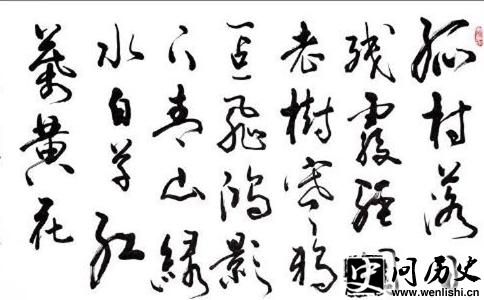 孤村落日
残霞轻
老樹寒鸦
一点飞鸿影
下青山绿
水白草红
葉黄花
问历史
www.wenlishi.cn